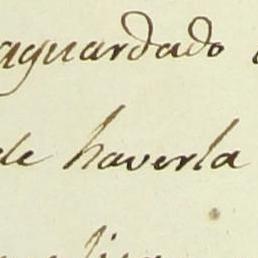 aguardado
de haverla